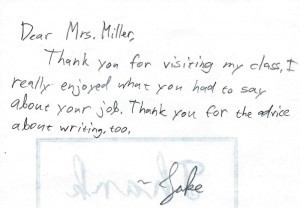 Dear Mrs. Miller,
Thank you for visiting my class. I
really enjoyed what you had to say
about your job. Thank you for the advice
about writing, too.
Thank
~ Jake